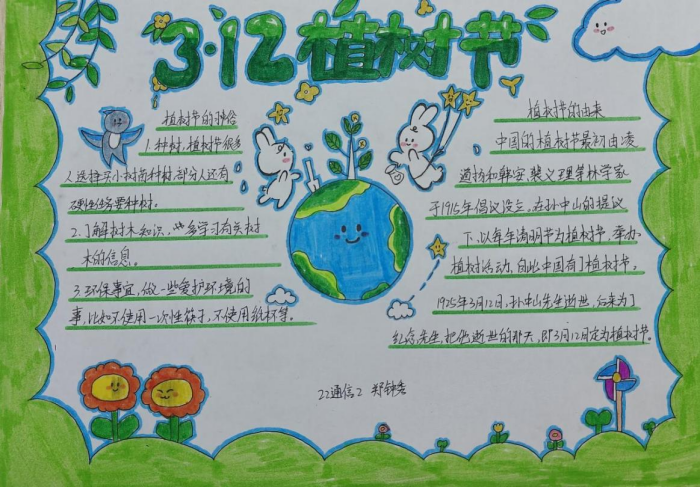 3·12植树节
植树节的习俗
1.种树,植树节很多
人选择买小树苗种树,部分人还有
硬性任务要种树。
2.了解树木知识,多学习有关树
木的信息。
3.环保事宜,做一些爱护环境的
事,比如不使用一次性筷子,不使用纸杯等。
植树节的由来
中国的植树节最初由凌
道扬和韩安、裴义理等林学家
于1915年倡议设立,在孙中山的提议
下,以每年清明节为植树节,举办
植树活动,自此中国有了植树节。
1925年3月12日,孙中山先生逝世,后来为了
纪念先生,把他逝世的那天,即3月12日定为植树节。
22通信2 郑钟